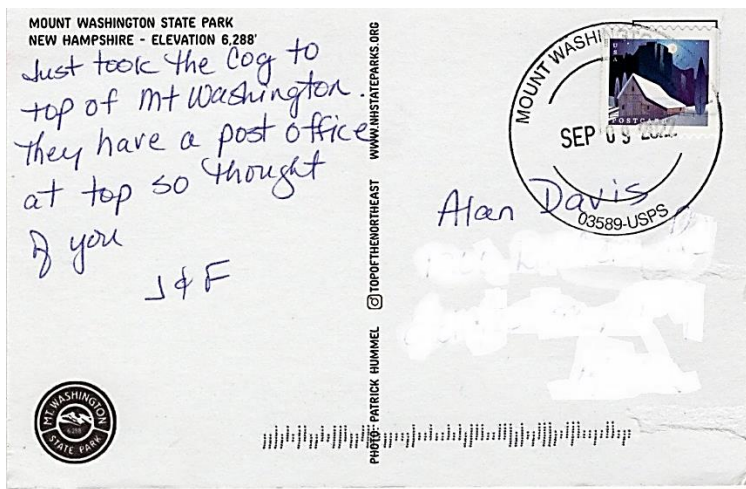 MOUNT WASHINGTON STATE PARK
NEW HAMPSHIRE - ELEVATION 6,288'
Just took the Cog to
top of Mt Washington.
They have a post office
at top so thought
of you
J & F
MT. WASHINGTON
6,288
STATE PARK
WWW.NHSTATEPARKS.ORG
TOPOFTHENORTHEAST
PHOTO: PATRICK HUMMEL
MOUNT WASHINGTON
SEP 09 2022
03589-USPS
USA
POSTCARD
Alan Davis